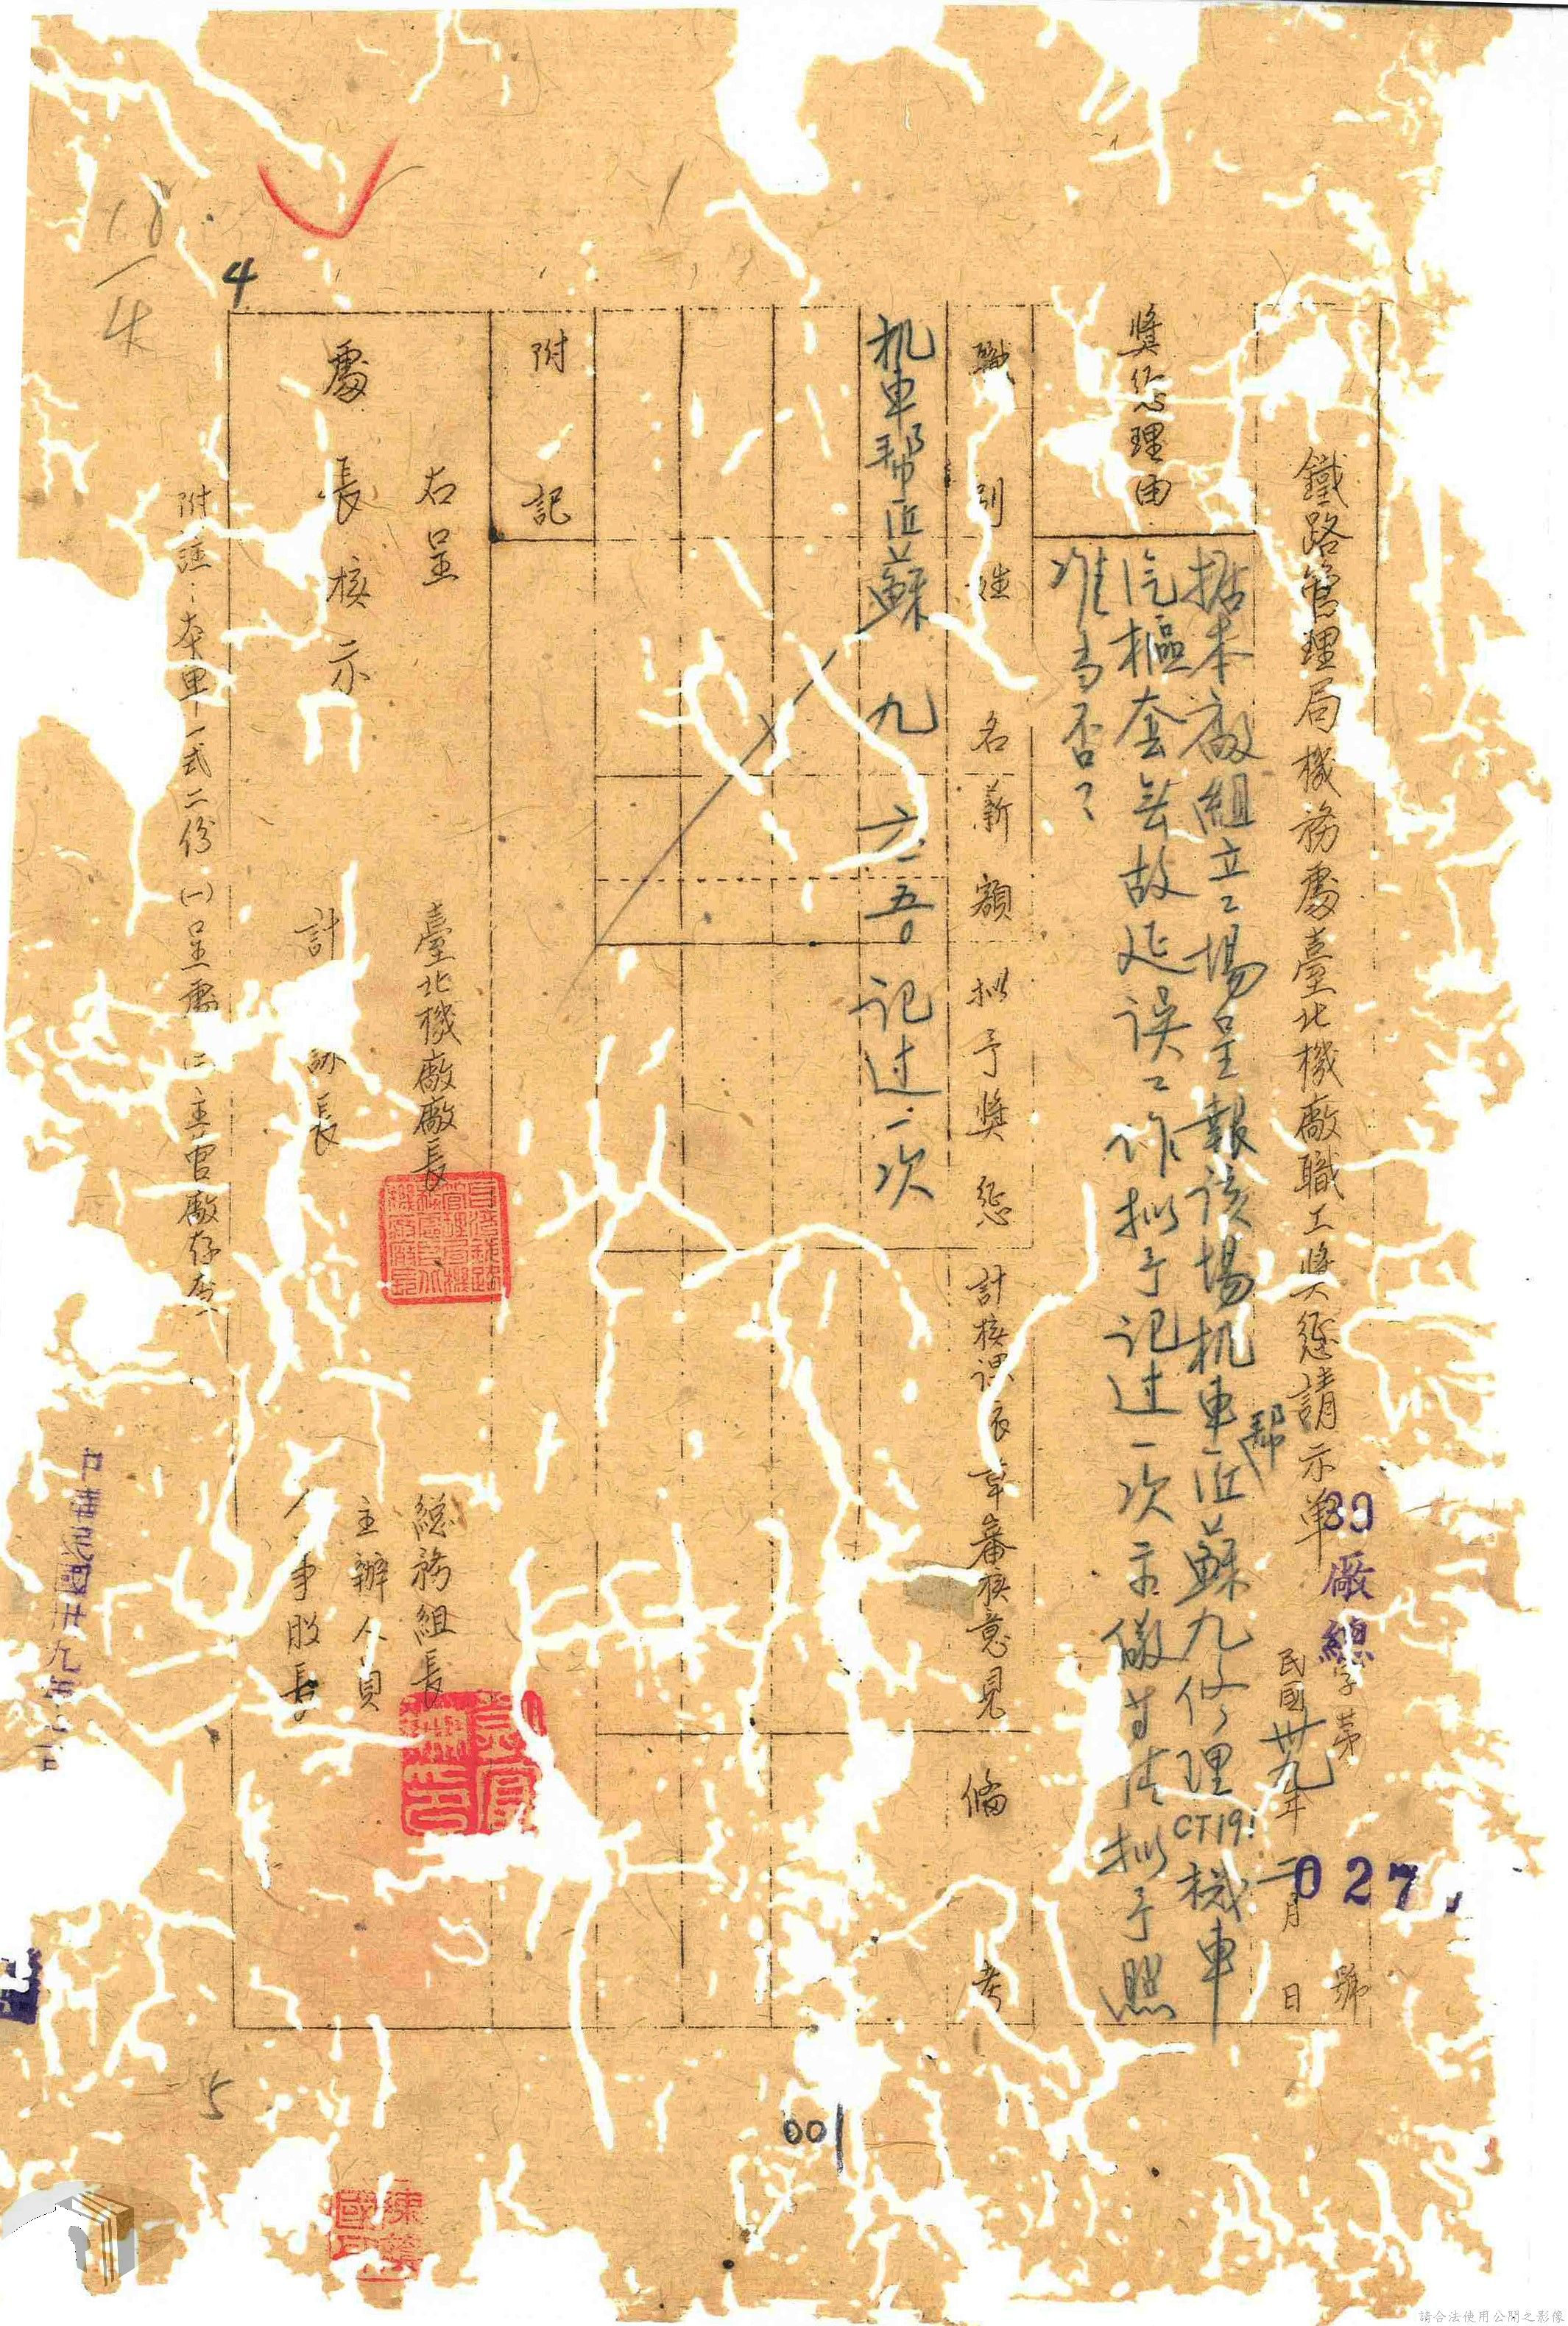 鐵路管理局機務處臺北機廠職工獎懲請示單
39廠總字第 027 號
民國卅九年二月 日
獎懲理由
据本廠組立工場呈報該場机車帮匠蘇九修理CT191機車
汽樞套無故延误工作拟予记过一次示儆 拟予照
准当否
職別
姓名
薪額
拟予獎懲
計核課 審核意見
俻考
机車帮匠
蘇九
六五〇
记过一次
附記
右呈
處長核示
臺北機廠廠長
計 課長
總務組長
主辦人員
人事股長
附註:本單一式二份(一)呈處(二)主管廠存查
4
5
001
請合法使用公開之影像